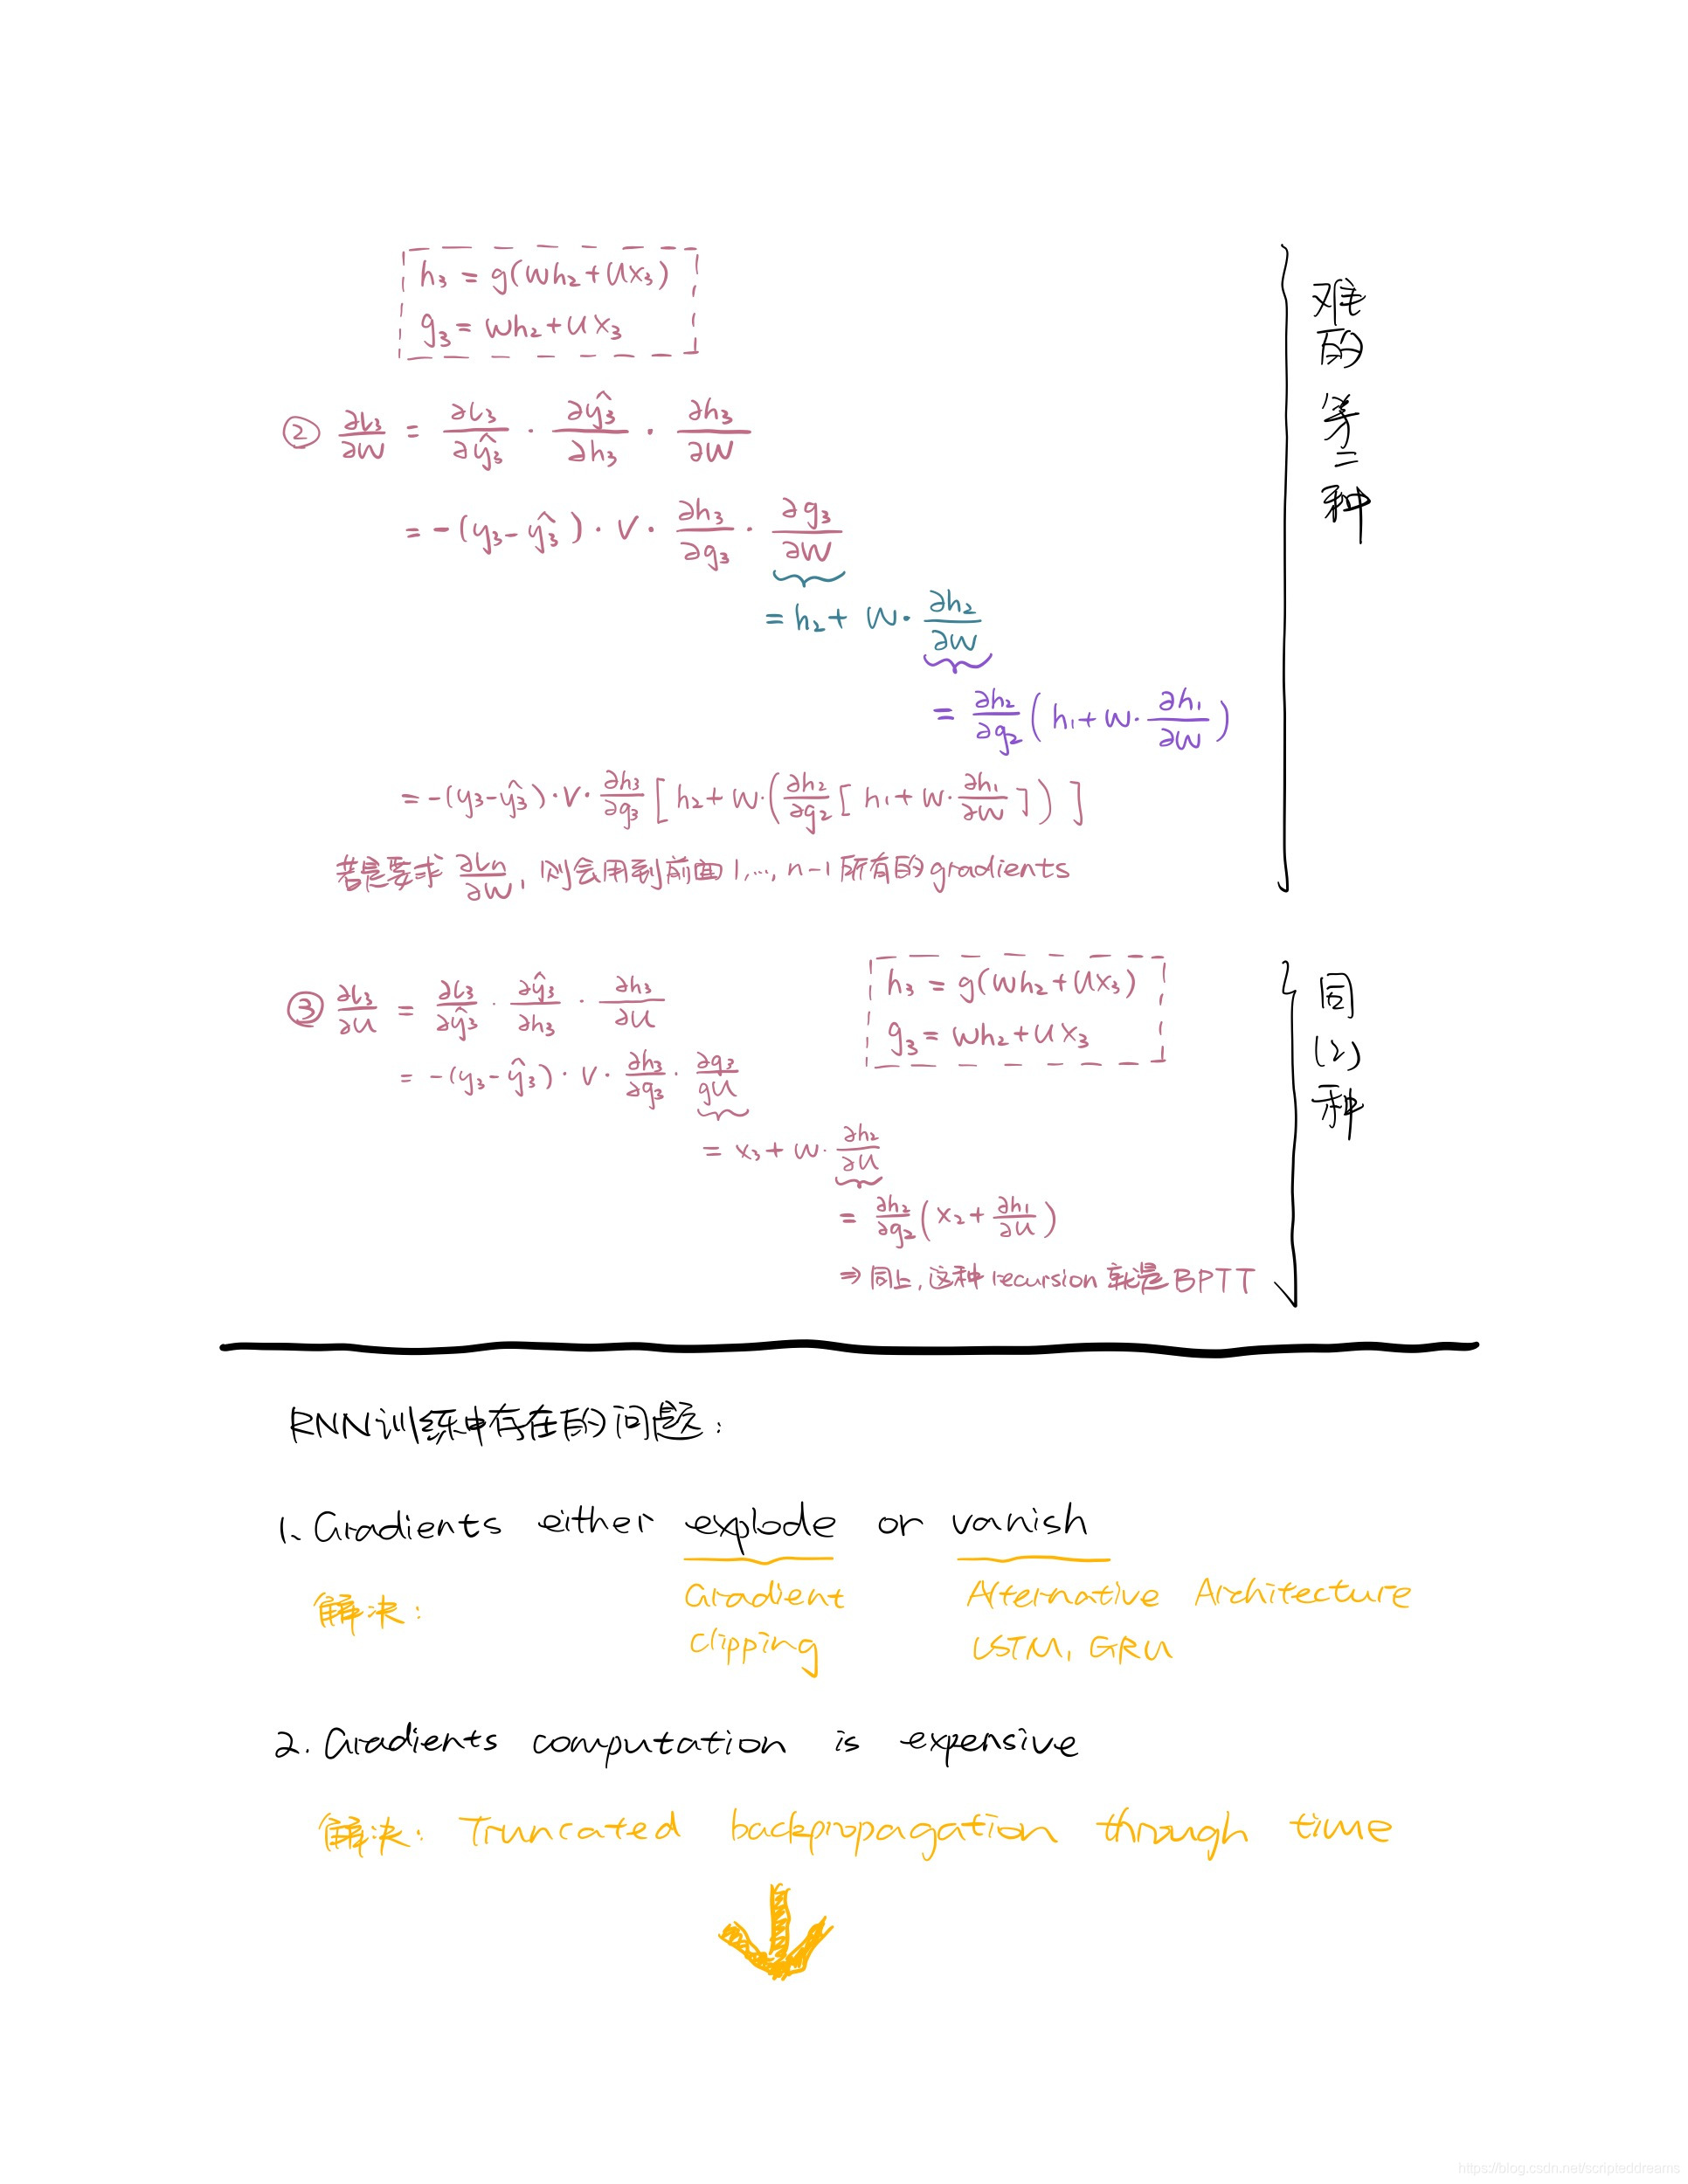 h₃ = g(Wh₂+Ux₃)
g₃ = Wh₂+Ux₃
② ∂L₃/∂W = ∂L₃/∂ŷ₃ · ∂ŷ₃/∂h₃ · ∂h₃/∂W
= -(y₃-ŷ₃) · V · ∂h₃/∂g₃ · ∂g₃/∂W
= h₂ + W · ∂h₂/∂W
= ∂h₂/∂g₂ (h₁+W·∂h₁/∂W)
= -(y₃-ŷ₃)·V·∂h₃/∂g₃ [h₂+W·(∂h₂/∂g₂ [h₁+W·∂h₁/∂W])]
若是要求 ∂Ln/∂W, 则会用到前面1,…, n-1所有的gradients
难的第二种
③ ∂L₃/∂U = ∂L₃/∂ŷ₃ · ∂ŷ₃/∂h₃ · ∂h₃/∂U
h₃ = g(Wh₂+Ux₃)
g₃ = Wh₂+Ux₃
= -(y₃-ŷ₃) · V · ∂h₃/∂g₃ · ∂g₃/gU
= x₃ + W · ∂h₂/∂U
= ∂h₂/∂g₂ (x₂ + ∂h₁/∂U)
⇒ 同上, 这种recursion 就是BPTT
同(2)种
RNN训练中存在的问题:
1. Gradients either explode or vanish
解决: Gradient Alternative Architecture
Clipping LSTM, GRU
2. Gradients computation is expensive
解决: Truncated backpropagation through time
https://blog.csdn.net/scripteddreams